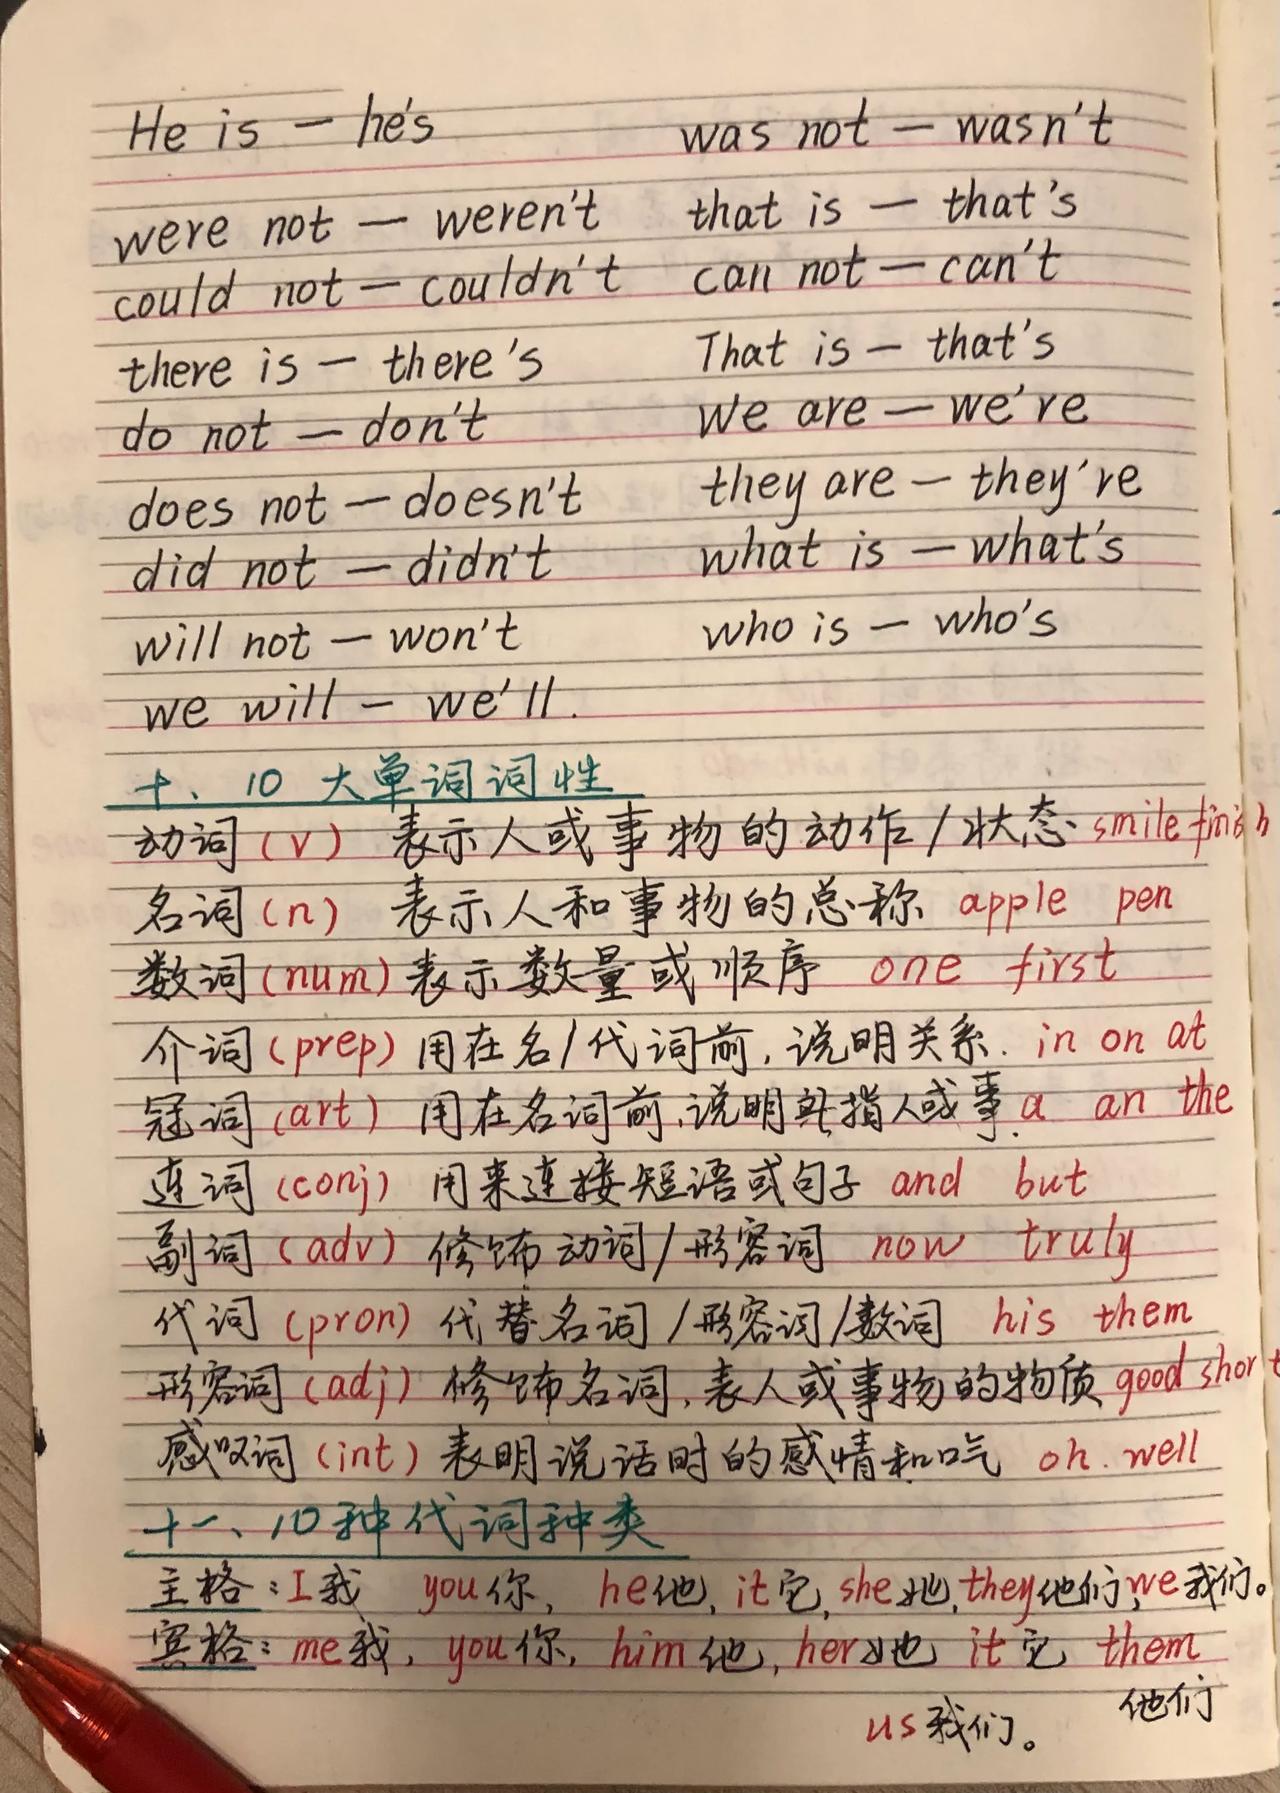 He is — he's was not — wasn't
were not — weren't that is — that's
could not — couldn't can not — can't
there is — there's That is — that's
do not — don't we are — we're
does not — doesn't they are — they're
did not — didn't what is — what's
will not — won't who is — who's
we will — we'll.
十、10大单词词性
动词(v) 表示人或事物的动作/状态 smile finish
名词(n) 表示人和事物的总称 apple pen
数词(num) 表示数量或顺序 one first
介词(prep) 用在名/代词前,说明关系. in on at
冠词(art) 用在名词前,说明其指人或事. a an the
连词(conj) 用来连接短语或句子 and but
副词(adv) 修饰动词/形容词 now truly
代词(pron) 代替名词/形容词/数词 his them
形容词(adj) 修饰名词,表人或事物的物质 good short
感叹词(int) 表明说话时的感情和口气 oh. well
十一、10种代词种类
主格:I我 you你, he他, it它, she她, they他们, we我们。
宾格:me我, you你, him他, her她 it它 them
他们
us我们。